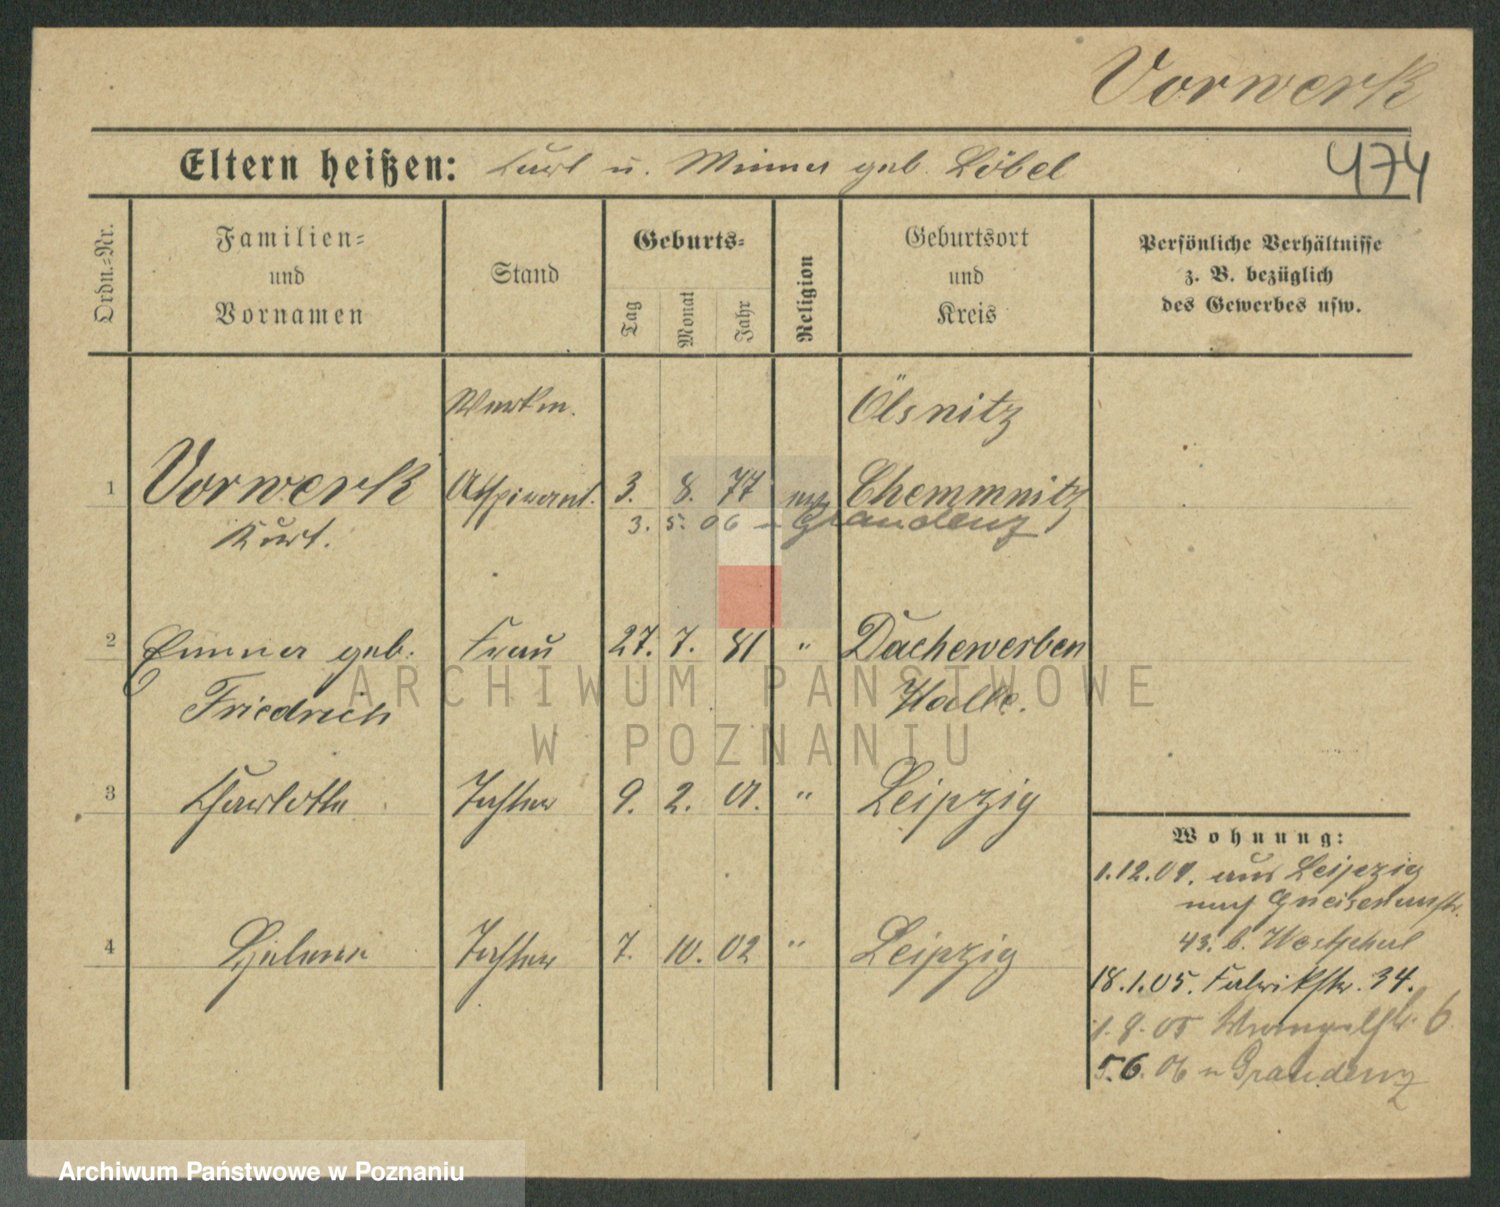 Vorwerk
Eltern heißen: Karl u. Minna geb. Löbel
474
Ordn.=Nr.
Familien=
und
Vornamen
Stand
Geburts=
Tag
Monat
Jahr
Religion
Geburtsort
und
Kreis
Persönliche Verhältnisse
z. B. bezüglich
des Gewerbes usw.
Werkm. Ölsnitz
1 Vorwerk Aspirant. 3. 8. 77 Chemmnitz
Kurt. 3. 5. 06 n Graudenz
2 Emma geb. Frau 27. 7. 81 " Dachewerben
Friedrich Halle.
3 Charlotte Tochter 9. 2. 01. " Leipzig
4 Helene Tochter 7. 10. 02 " Leipzig
Wohnung:
1.12.04. aus Leipzig
nach Gneisenaustr.
43. b. Westphal
18.1.05. Fabrikstr. 34.
1.8.05 Wrangelstr. 6
5.6.06 n Graudenz
ARCHIWUM PAŃSTWOWE
W POZNANIU
Archiwum Państwowe w Poznaniu